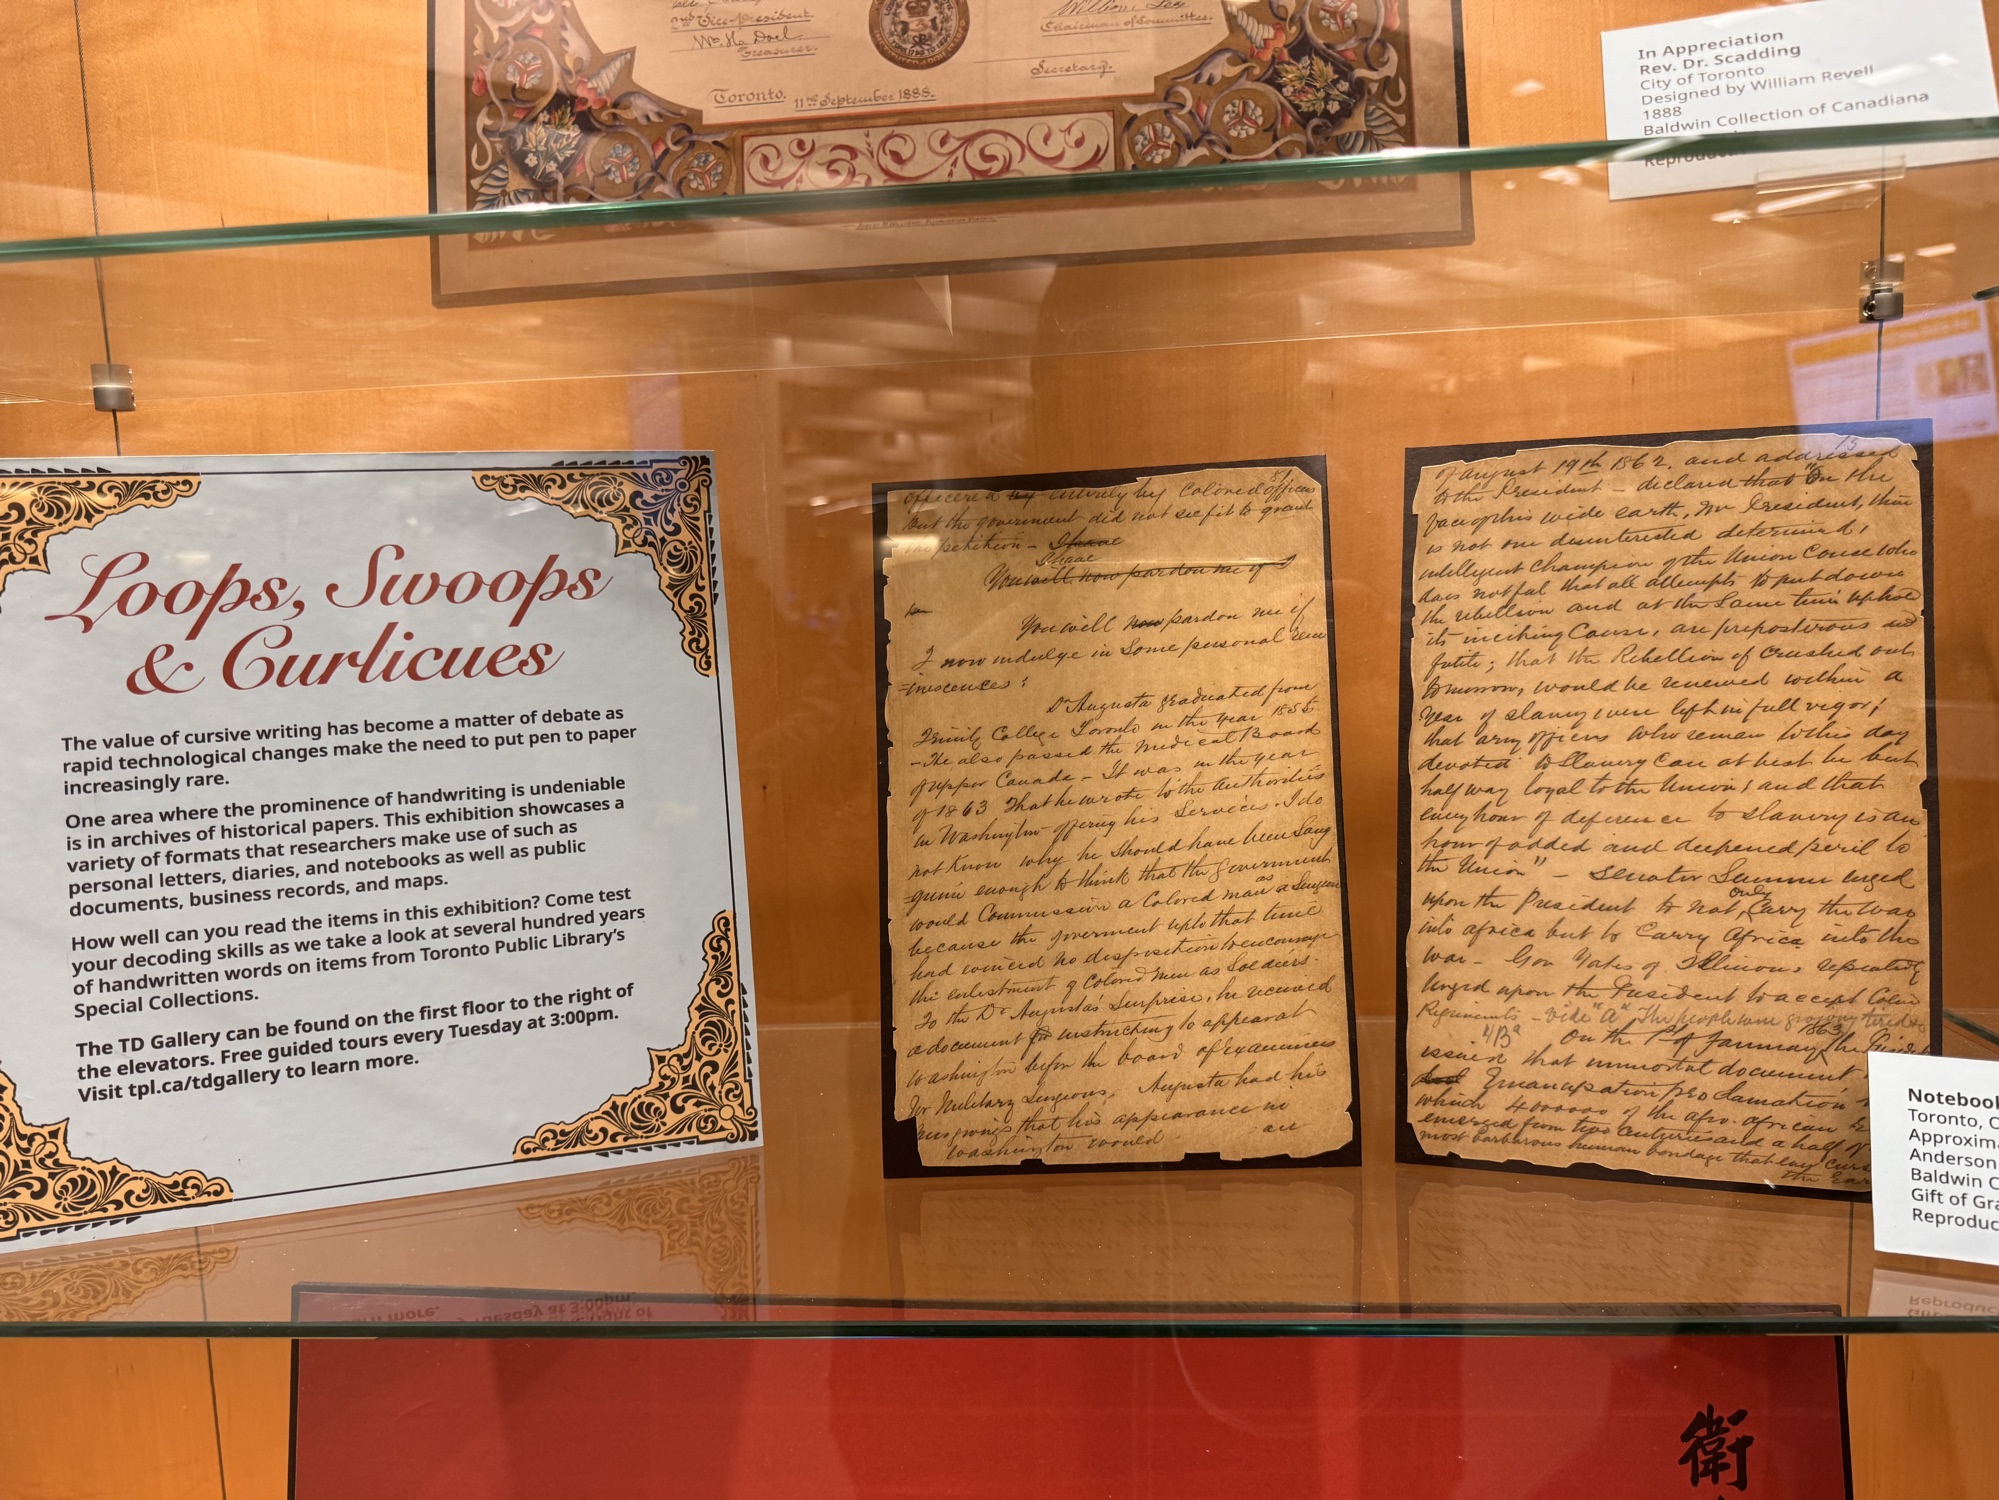 2nd Vice-President.
Wm. H. Doel
Treasurer.
William Lea
Chairman of Committee.
Secretary.
Toronto. 11th September 1888.
In Appreciation
Rev. Dr. Scadding
City of Toronto
Designed by William Revell
1888
Baldwin Collection of Canadiana
Loops, Swoops
& Curlicues
The value of cursive writing has become a matter of debate as
rapid technological changes make the need to put pen to paper
increasingly rare.
One area where the prominence of handwriting is undeniable
is in archives of historical papers. This exhibition showcases a
variety of formats that researchers make use of such as
personal letters, diaries, and notebooks as well as public
documents, business records, and maps.
How well can you read the items in this exhibition? Come test
your decoding skills as we take a look at several hundred years
of handwritten words on items from Toronto Public Library's
Special Collections.
The TD Gallery can be found on the first floor to the right of
the elevators. Free guided tours every Tuesday at 3:00pm.
Visit tpl.ca/tdgallery to learn more.
officered by entirely by Colored officers
But the government did not see fit to grant
the petition – Isaac
Isaac
You will now pardon me if I
You will now pardon me if
I now indulge in Some personal rem
=iniscences:
Dr Augusta graduated from
Trinity College Toronto in the year 1855
– He also passed the Medical Board
of upper Canada – It was in the year
of 1863 That he wrote to the Authorities
in Washington offering his Services. I do
not Know why he Should have been Sang
=guine enough to think that the government
would Commission a Colored man as a Surgeon
because the goverment upto that time
had evinced no disposition to encourage
the enlestment of Colored Men as Soldiers.
To the Dr Augusta's Surprise, he received
a document instructing to appear at
Washington before the board of examiners
for Military Surgeons. Augusta had his
misgivings that his appearance in
Washington would an
15
of august 19th 1862. and addressed
to the President – declared that "On the
face of this wide earth, Mr President, there
is not one disinterested determined,
intelligent Champion of the Union Cause who
does not feel that all attempts to put down
the rebellion and at the Same time uphold
its inciting Cause, are preposterous and
futile; that the Rebellion if crushed out
tomorrow, would be renewed within a
year if slavery were left in full vigor;
that army officers who remain to this day
devoted to Slavery Can at best be but
half way loyal to the Union; and that
every hour of deference to slavery is an
hour of added and deepened peril to
the Union" – Senator Sumner urged
upon the President to not only Carry the war
into africa but to Carry Africa into the
war – Gov Yates of Illinois repeatedly
Urged upon the President to accept Colored
Regiments – vide "A" The people were
"B" On the 1st of January 1863 the
issued that immortal document
Emancipation proclamation
which 4000000 of the afro-african
emerged from two Centuries and a half of
most barbarous human bondage that
the
Notebook
Toronto,
Anderson
Baldwin C
Gift of
Reproduc
衛